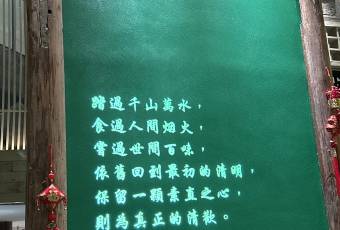 踏過千山萬水，
食過人間烟火，
嘗過世間百味，
依舊回到最初的清明，
保留一顆素直之心，
則為真正的清歡。